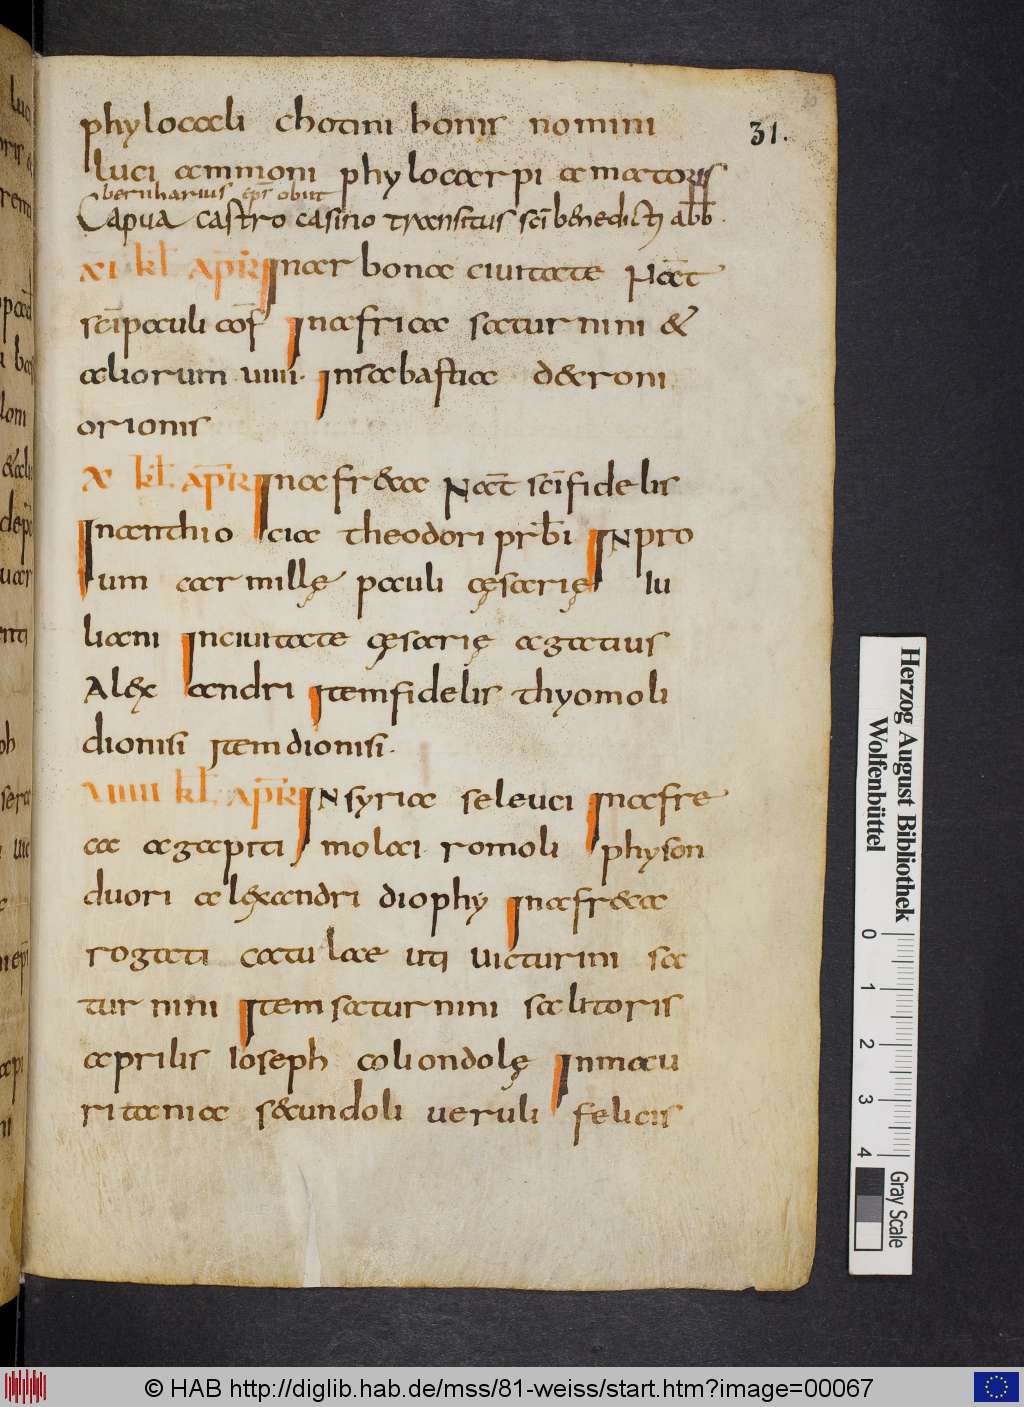 phylocali chotini bonis nomini
31.
luci ammoni phylocarpi amatoris
bernharius ep̅s obiit
Capua castro casino transitus sc̅i benedicti abb̅
XI kl̅ APR̅ Inar bona ciuitate Nat̅
sc̅i pauli cof̅ Inafrica saturnini &
aliorum uiiii· Insabastia d&roni
orionis
X kl̅ APR̅ Inafr&ca Nat̅ sc̅i fidelis
Inanthio cia theodori prb̅i INpro
um carmillę pauli cęsarię iu
liani Inciuitate cęsarię agatius
Alex andri Itemfidelis thyomoli
dionisi Itemdionisi·
VIIII kl̅ APR̅ INsyria seleuci Inafre
ca agapiti molaci romoli physon
duori alexandri diophy Inafr&ca
rogati catulae uti uicturini sa
turnini Item saturnini salitoris
aprilis Ioseph coliondolę Inmau
ritania s&cundoli ueruli felicis
Herzog August Bibliothek
Wolfenbüttel
0 1 2 3 4
Gray Scale
© HAB http://diglib.hab.de/mss/81-weiss/start.htm?image=00067